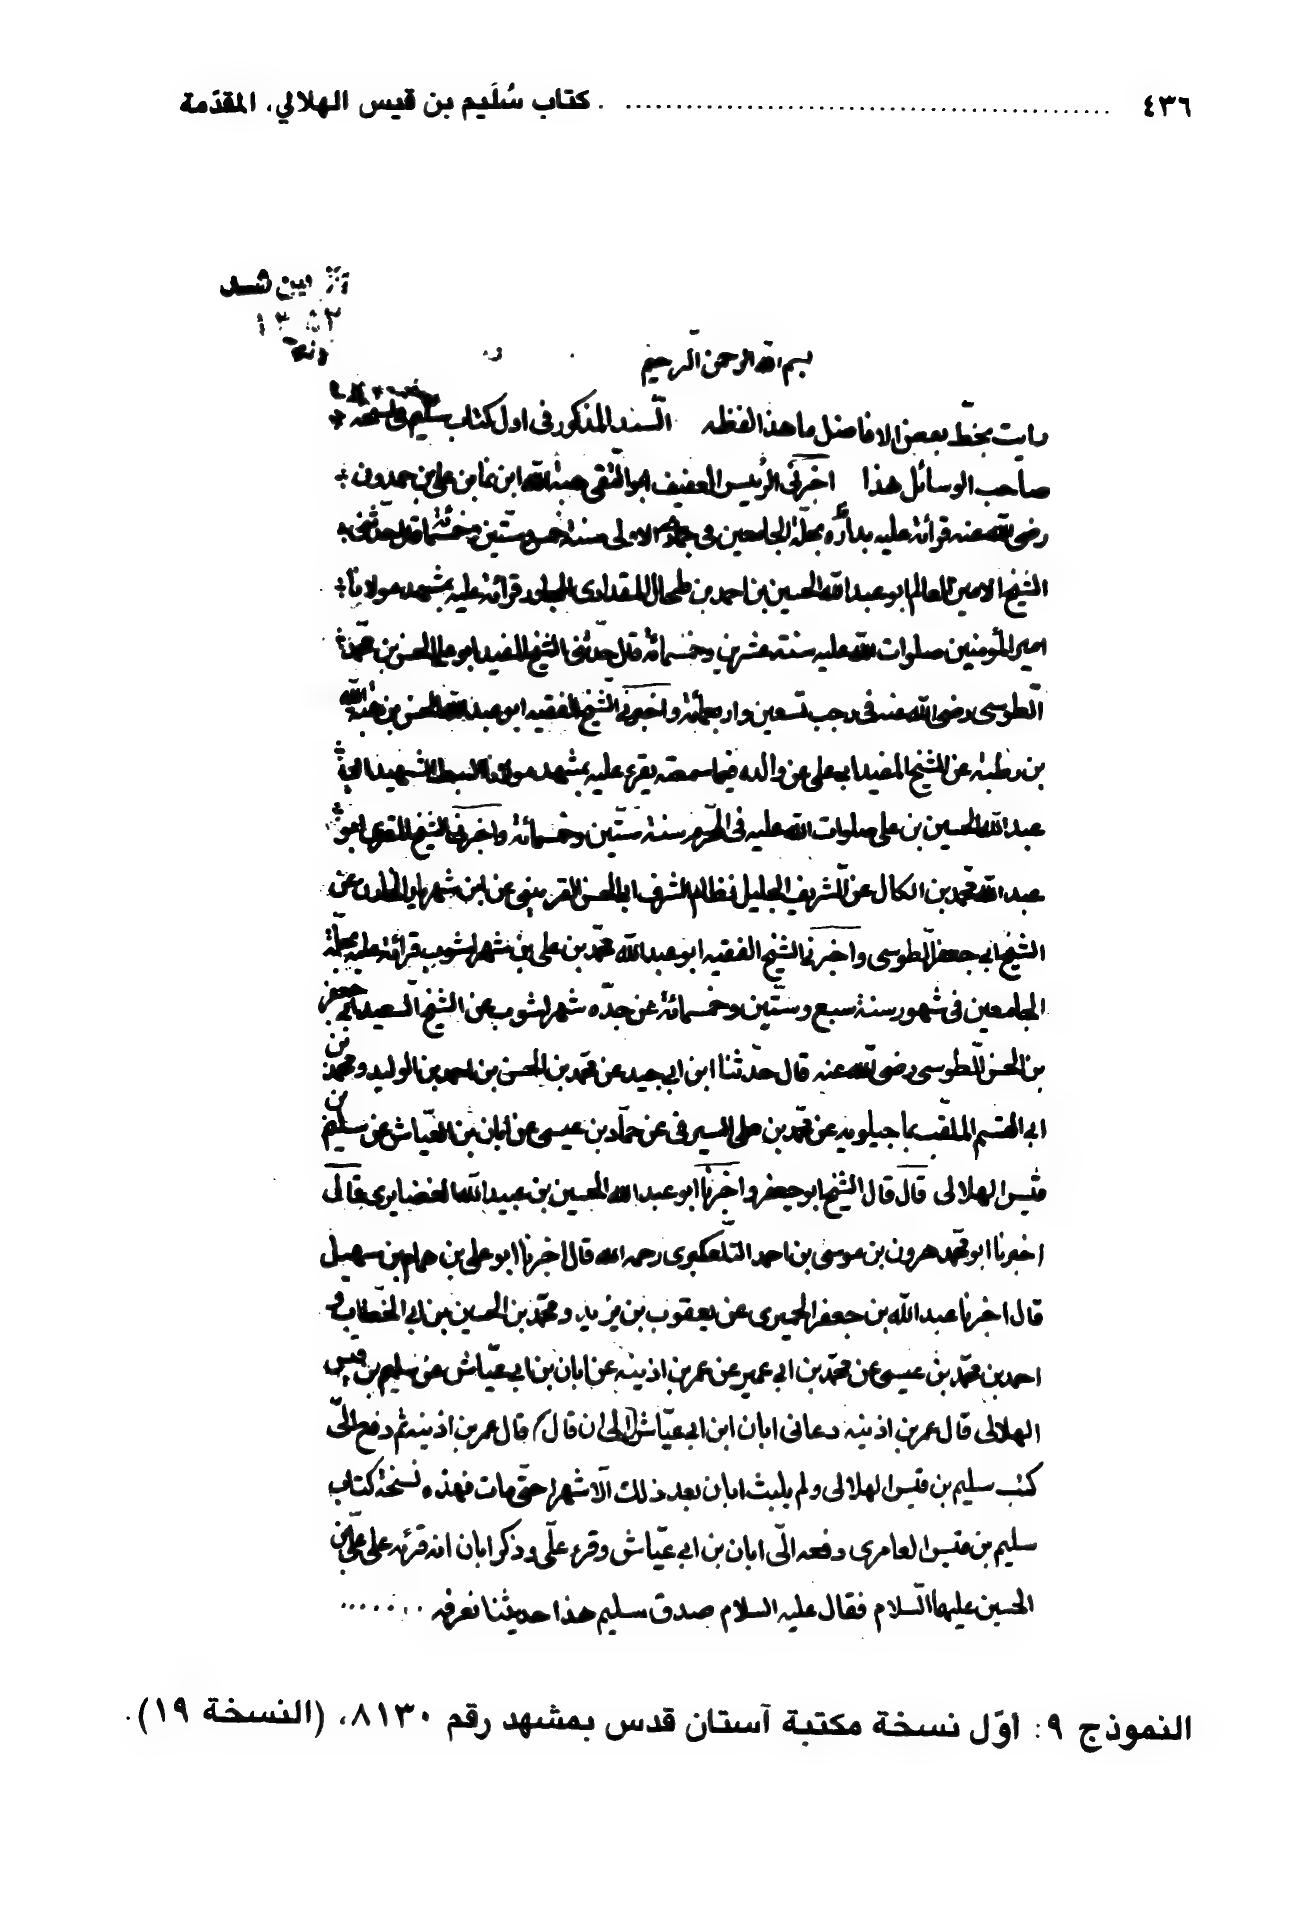 ٤٣٦ ........ كتاب سُلَيم بن قيس الهلالي، المقدّمة
بين شد
بسم الله الرحمن الرحيم
رايت بخطّ بعض الافاضل ما هذا لفظه السند المذكور فى اول كتاب سليم فى نسخة
صاحب الوسائل هذا اخبرنى الرئيس العفيف ابو التقى هبة الله ابن نما بن على بن حمدون
رضى الله عنه قرائة عليه بداره بحلّة الجامعين فى جمادى الاولى سنة خمس وستّين وخمسمائة قال حدثنى
الشيخ الامين العالم ابو عبد الله الحسين بن احمد بن طحال المقدادى المجاور قرائة عليه بمشهد مولانا
امير المؤمنين صلوات الله عليه سنة عشرين وخمسمائة قال حدّثنى الشيخ المفيد ابو على الحسن بن محمّد
الطّوسى رضى الله عنه فى رجب تسعين واربعمائة واخبرنى الشيخ الفقيه ابو عبد الله الحسن بن هبة الله
بن رطبة عن الشيخ المفيد ابى على عن والده فيما سمعته يقرء عليه بمشهد مولانا السبط الشهيد ابى
عبد الله الحسين بن على صلوات الله عليه فى المحرم سنة ستّين وخمسمائة واخبرنى الشيخ المقرى ابو
عبد الله محمّد بن الكال عن الشريف الجليل نظام الشرف ابى الحسن العريضى عن ابن شهريار الخازن عن
الشيخ ابى جعفر الطوسى واخبرنى الشيخ الفقيه ابو عبد الله محمّد بن على بن شهراشوب قرائة عليه بحلّة
الجامعين فى شهور سنة سبع وستّين وخمسمائة عن جدّه شهراشوب عن الشيخ السعيد ابى جعفر
بن الحسن الطوسى رضى الله عنه قال حدّثنا ابن ابى جيد عن محمّد بن الحسن بن احمد بن الوليد ومحمّد بن
ابى القسم الملقّب بماجيلويه عن محمّد بن على الصيرفى عن حمّاد بن عيسى عن أبان بن العيّاش عن سليم بن
قيس الهلالى قال قال الشيخ ابو جعفر واخبرنا ابو عبد الله الحسين بن عبيد الله الغضايرى قال
اخبرنا ابو محمّد هرون بن موسى بن احمد التلّعكبرى رحمه الله قال اخبرنا ابو على بن همام بن سهيل
قال اخبرنا عبد الله بن جعفر الحميرى عن يعقوب بن يزيد ومحمّد بن الحسين بن ابى الخطّاب و
احمد بن محمّد بن عيسى عن محمّد بن ابى عمير عن عمر بن اذينه عن ابان بن ابى عيّاش عن سليم بن قيس
الهلالى قال عمر بن اذينه دعانى ابان ابن ابى عيّاش الى ان قال قال عمر بن اذينه ثم دفع الىّ
كتب سليم بن قيس الهلالى ولم يلبث ابان بعد ذلك الّا شهرا حتّى مات فهذه نسخة كتاب
سليم بن قيس العامرى دفعه الّى ابان بن ابى عيّاش وقرء علّى وذكر ابان انه قرئه على علىّ بن
الحسين عليهما السّلام فقال عليه السلام صدق سليم هذا حديثنا نعرفه ......
النموذج ٩: أوّل نسخة مكتبة آستان قدس بمشهد رقم ٨١٣٠، (النسخة ١٩).